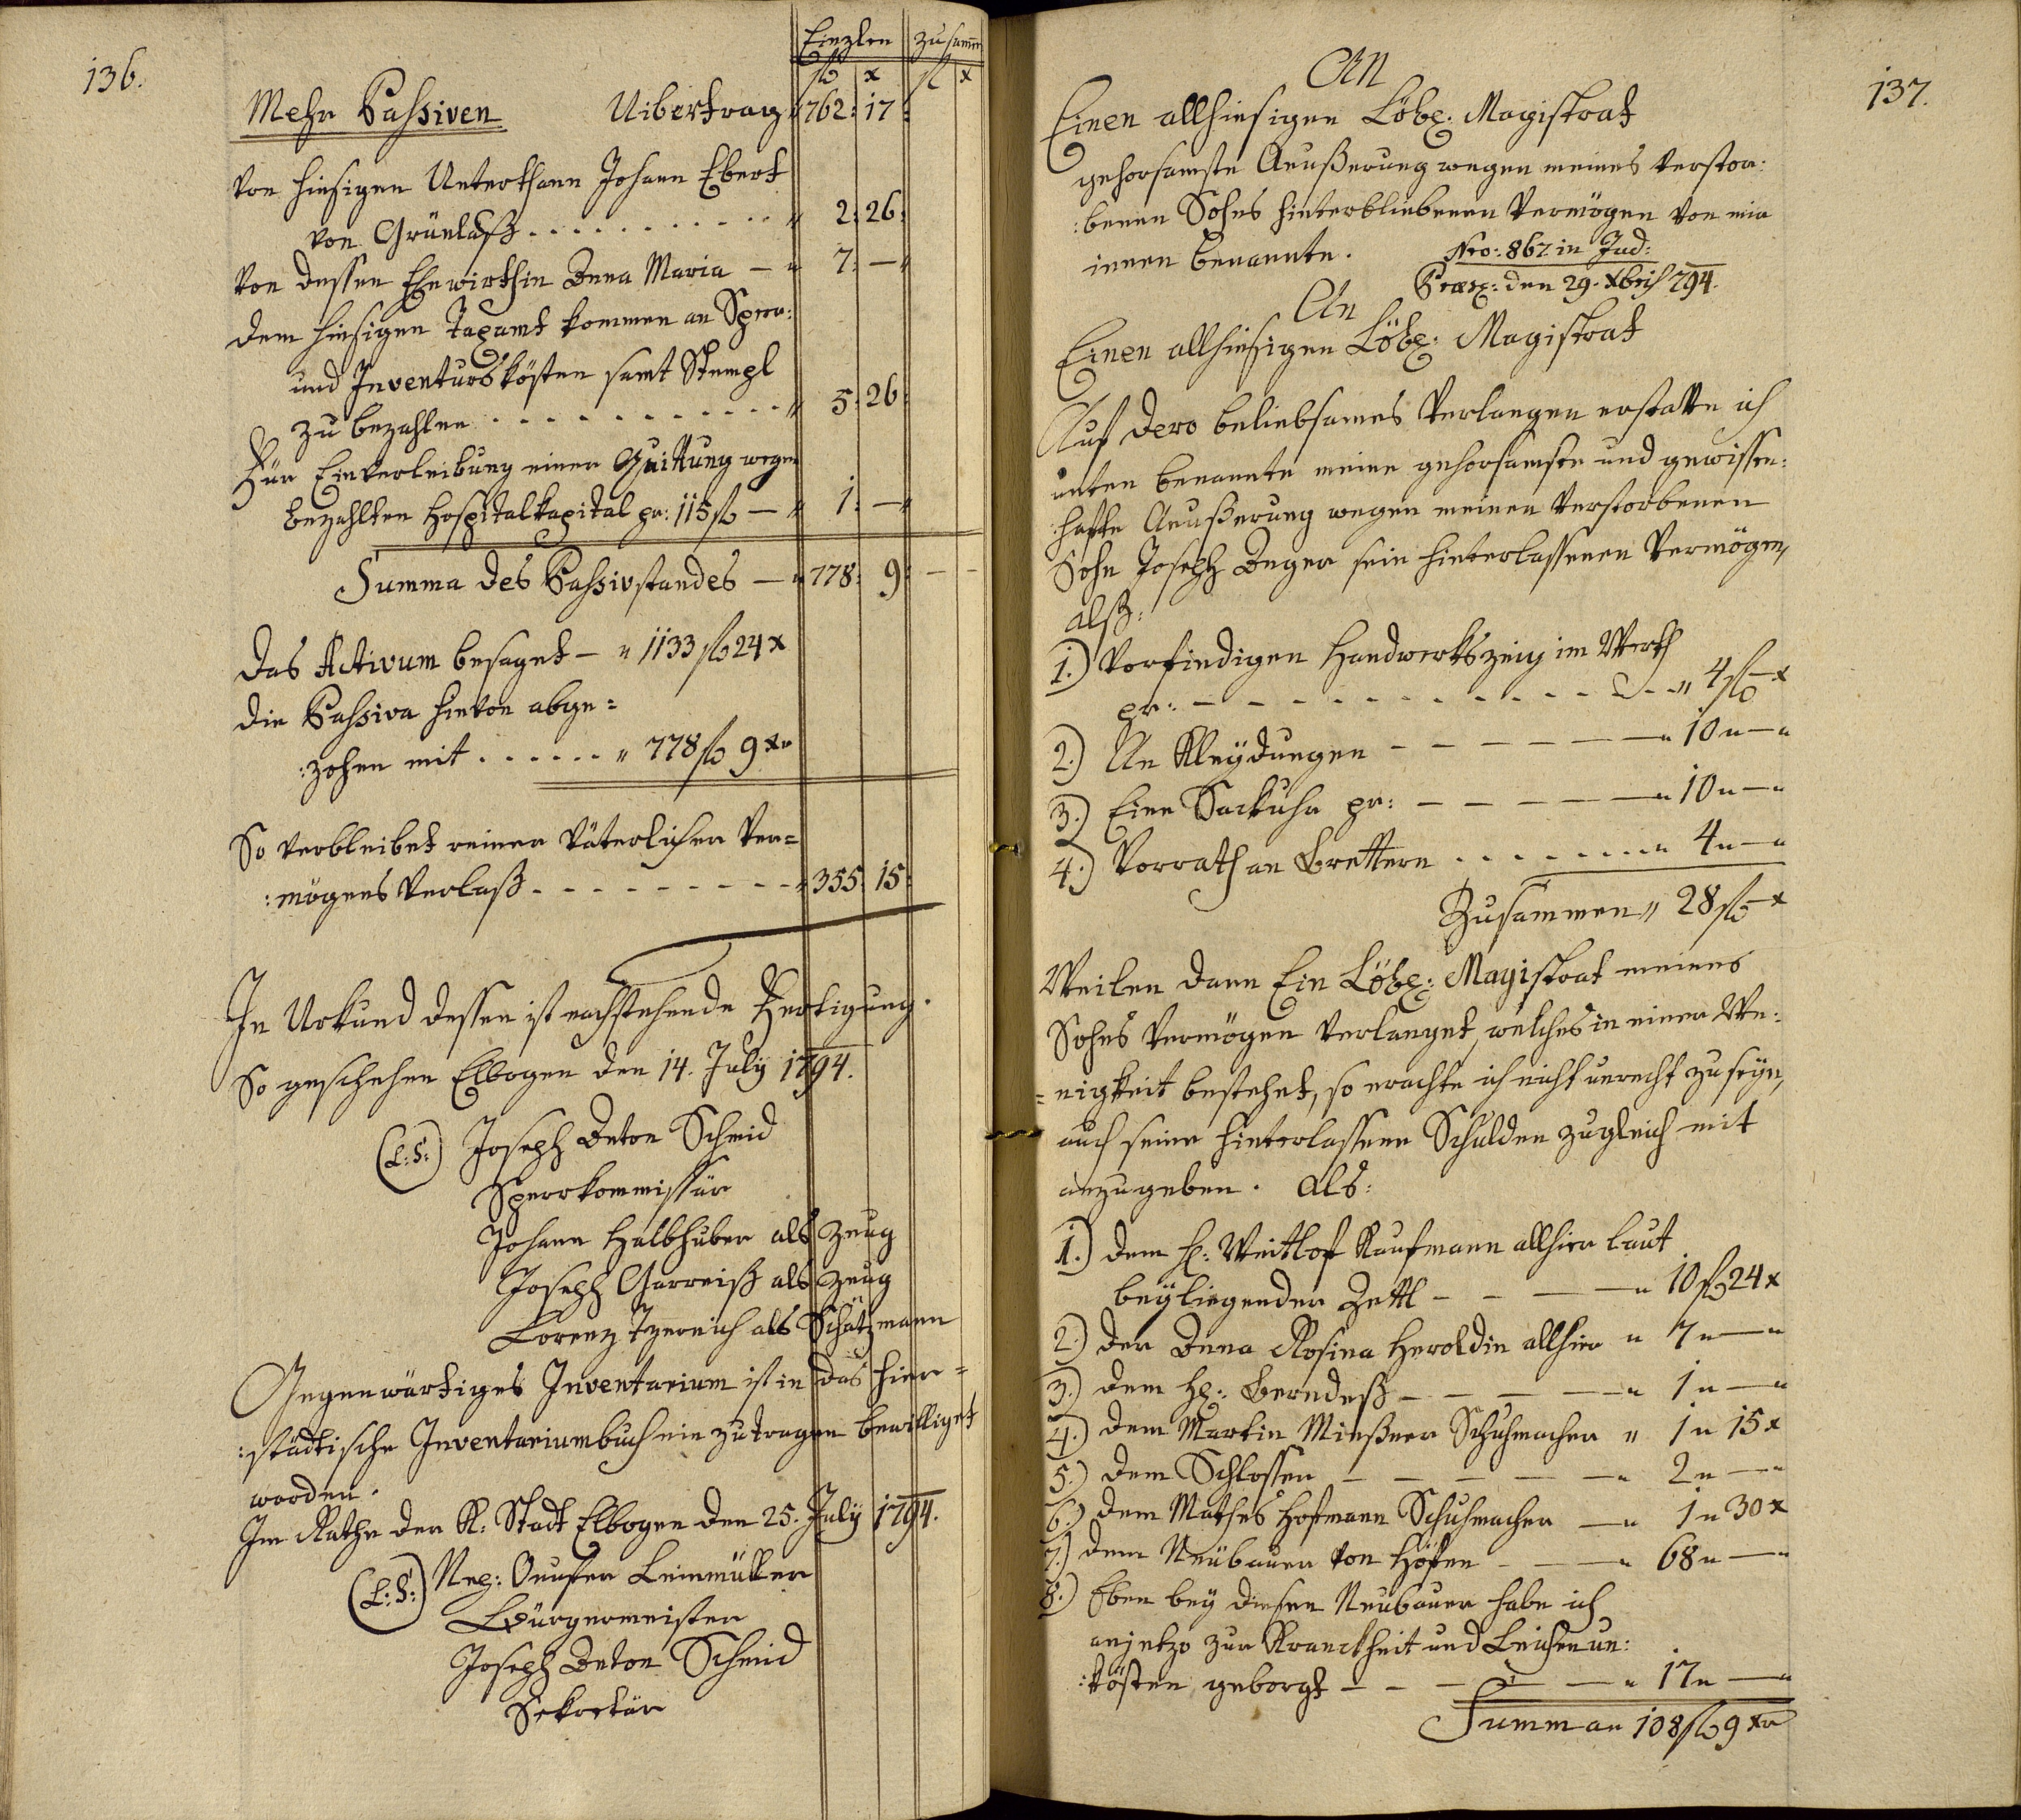 136.
Einzlen zusamm
fl x fl x
Mehr Passiven Uibertrag " 762: 17:
Von hiesigen Unterthann Johann Ebert
von Grünlaß . . . . . . . . . " 2: 26:
Von dessen Ehewirthin Anna Maria — " 7: — "
dem hiesigen Taxamt kommen an Sperr:
und Inventurskösten samt Stempl
zu bezahlen . . . . . . . . . . . " 5: 26:
Für Einverleibung einer Quittung wegen
bezahlten Hospitalkapital pr: 115 fl — " 1: — "
Summa des Passivstandes — " 778: 9: — —
Das Activum besaget — " 1133 fl 24 x
die Passiva hievon abge=
:zohen mit . . . . . . . " 778 fl 9 xr
So verbleibet reiner väterlicher Ver=
:mögens Verlaß - - - - - - - - - " 355: 15:
In Urkund dessen ist nachstehende Fertigung.
So geschehen Elbogen den 14. July 1794.
(L:S:) Joseph Anton Schmid
Sperrkommissär
Johann Halbhuber als Zeug
Joseph Garreiß als Zeug
Lorenz als Schätzmann
Gegenwärtiges Inventarium ist in das hier=
:städtische Inventariumbuch ein zutragen bewilliget
worden.
Im Rathe der K: Stadt Elbogen den 25. July 1794.
(L:S:) Leinmüller
Bürgermeister
Joseph Anton Schmid
Sekretär
137.
An
Einen allhiesigen Löbl: Magistrat
gehorsamste Aeußerung wegen meines verstor:
:benen Sohns hinterbliebenen Vermögen von mir
innen benannte. Nro: 862 in Jud:
Praes: den 29. Xbris 794.
An
Einen allhiesigen Löbl: Magistrat
Auf dero beliebsames Verlangen erstatte ich
unten benannte meine gehorsamste und gewissen:
:hafte Aeußerung wegen meinen verstorbenen
Sohn Joseph Anger sein hinterlassenen Vermögen,
alß:
1.) Vorfindigen Handwerkszeug im Werth
pr: — - - - - - - - - - - - " 4 fl — x
2.) An Kleydungen — — — — — — " 10 " — "
3.) Eine Sackuhr pr: — — — — — " 10 " — "
4.) Vorrath an Brettern . . . . . . . . " 4 " — "
Zusammen " 28 fl — x
Weilen dann Ein Löbl: Magistrat meines
Sohns Vermögen verlanget, welches in einer We:
=nigkeit bestehet, so erachte ich nicht unrecht zu seyn,
auch seine hinterlassene Schulden zugleich mit
anzugeben. Als:
1.) dem H: Weitlof Kaufmann allhier laut
beyliegender Zettl — — — — " 10 fl 24 x
2.) der Anna Rosina Heroldin allhier " 7 " — "
3.) dem H: Berndeß — — — — " 1 " — "
4.) dem Martin Meißner Schuhmacher " 1 " 15 x
5.) dem Schlosser — — — — — " 2 " — "
6.) dem Mathes Hofmann Schuhmacher — " 1 " 30 x
7.) dem Neübauer von Höfen — — — " 68 " — "
8.) Eben bey diesen Neubauer habe ich
anjetzo zur Kranckheit und Leichenun:
:kösten geborgt — — — — — " 17 " — "
Summa " 108 fl 9 xr